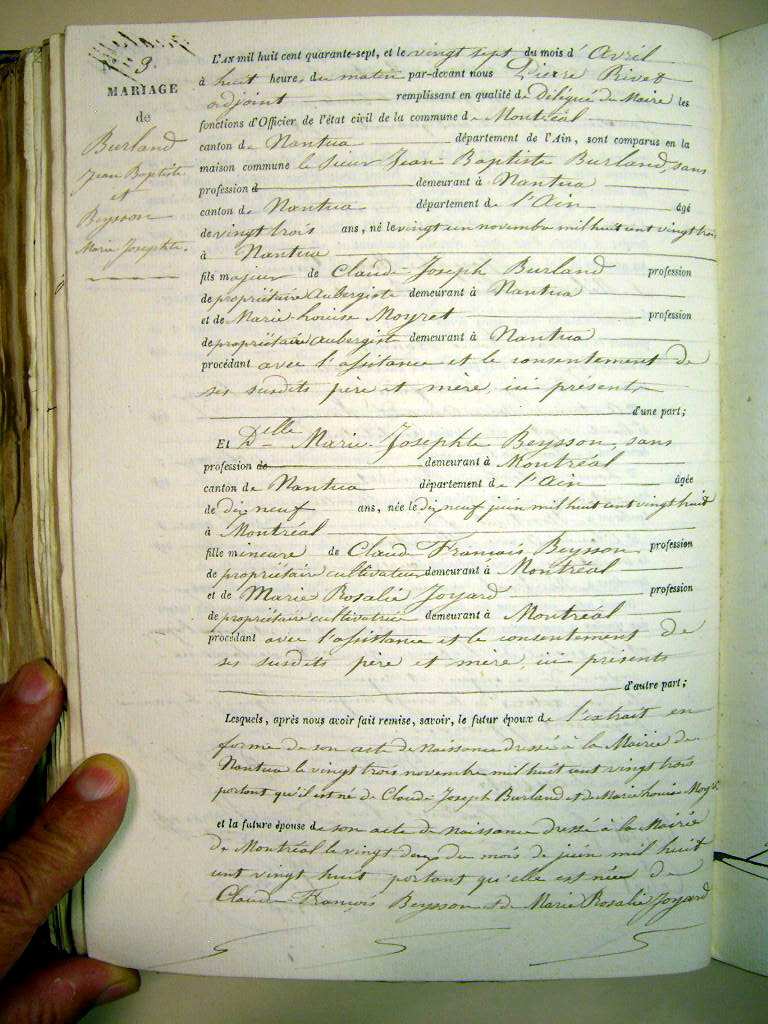 9.
MARIAGE
de
Burland
Jean Baptiste
et
Beysson
Marie Josephte.
L'AN mil huit cent quarante-sept, et le vingt sept du mois d'Avril
à huit heures du matin par-devant nous Pierre Rivet
adjoint remplissant en qualité de Délégué du Maire les
fonctions d'Officier de l'état civil de la commune de Montréal
canton de Nantua département de l'Ain, sont comparus en la
maison commune le sieur Jean Baptiste Burland, sans
profession d demeurant à Nantua
canton de Nantua département de l'Ain âgé
de vingt trois ans, né le vingt un novembre mil huit cent vingt trois
à Nantua
fils majeur de Claude Joseph Burland profession
de propriétaire aubergiste demeurant à Nantua
et de Marie Louise Moyret profession
de propriétaire aubergiste demeurant à Nantua
procédant avec l'assistance et le consentement de
ses susdits père et mère ici présents
d'une part;
Et Delle Marie Josephte Beysson, sans
profession de demeurant à Montréal
canton de Nantua département de l'Ain âgée
de dix neuf ans, née le dix neuf juin mil huit cent vingt huit
à Montréal
fille mineure de Claude François Beysson profession
de propriétaire cultivateur demeurant à Montréal
et de Marie Rosalie Joyard profession
de propriétaire cultivatrice demeurant à Montréal
procédant avec l'assistance et le consentement de
ses susdits père et mère, ici présents
d'autre part;
Lesquels, après nous avoir fait remise, savoir, le futur époux de l'extrait en
forme de son acte de Naissance dressé à la Mairie de
Nantua le vingt trois novembre mil huit cent vingt trois
portant qu'il est né de Claude Joseph Burland et de Marie Louise
et la future épouse de son acte de naissance dressé à la Mairie
de Montréal le vingt deux du mois de juin mil huit
cent vingt huit portant qu'elle est née de
Claude François Beysson et de Marie Rosalie Joyard